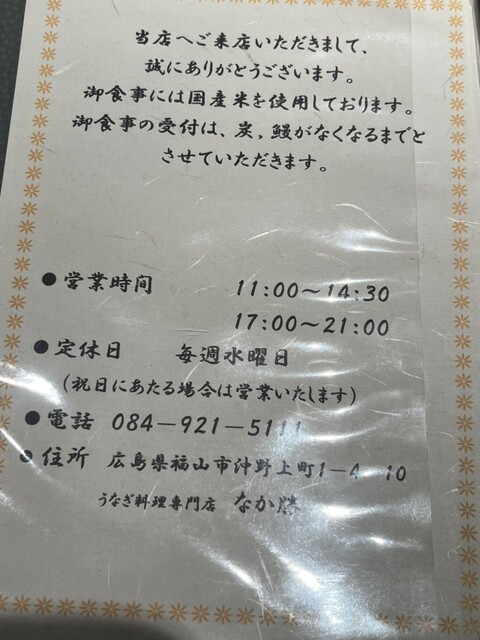 当店へご来店いただきまして、
誠にありがとうございます。
御食事には国産米を使用しております。
御食事の受付は、炭,鰻がなくなるまでと
させていただきます。
●営業時間 11:00～14:30
17:00～21:00
●定休日 毎週水曜日
(祝日にあたる場合は営業いたします)
●電話 084－921－5111
●住所 広島県福山市沖野上町1－4－10
うなぎ料理専門店 なか勝